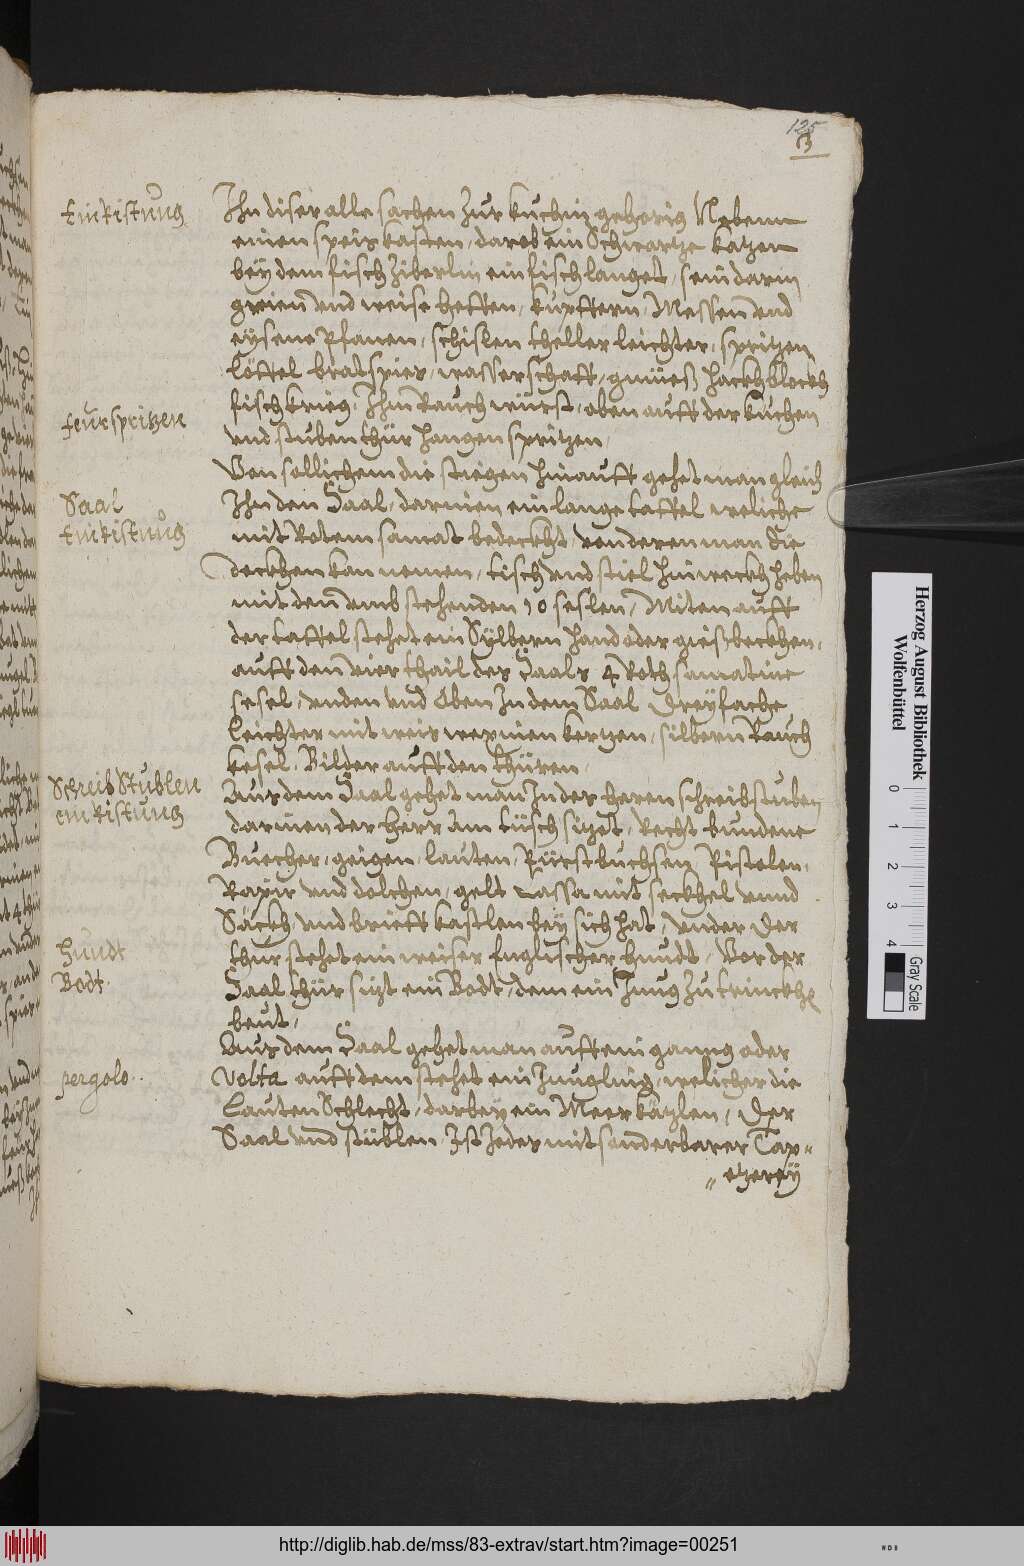 125
Einristung
Ihn diser alle sachen Zur kuchin gehorig Nebenn
einen speis kasten, darob ein Schwartze katzen
bey dem fisch Ziberlin ein fisch langet, sein darin
grien und weise heffen, kupffern, Messen und
eysene Pfanen, schislen theller leichter, spritzen
löffel bratspies, wasserschaff, hackhblockh
fischkrieg, Ihm Rauch würst, oben auff der kuchen
feur spritzen
und stuben thür hangen spritzen,
Von sollichem die stiegen hinauff gehet man gleich
Saal
Ihn den Saal, darinen ein lange taffel weliche
Einristung
mit Rotem samat bedeckht, von deren man die
deckhen kan nemen, tisch und stiel hinweckh heben
mit den umb stehenden 10 seslen, Miten auff
der taffel stehet ein Sylbern hand oder gießbeckhen,
auff den vier thail des Saals 4 Roth samatine
sesel, unden und Oben In dem Saal Dreyfache
leichter mit weis wexinen kertzen, silbern Rauch
kesel, Bilder auff den thüren,
Schreib Stüblen
Aus dem Saal gehet man In des heren schreibstuben
einristung
darinen der herr am tüsch sitzet, Recht bundene
Buecher, geigen, lauten, Pürstbuchsen, Pistolen,
Rapir und dolchen, gelt Cassa mit seckhel unnd
Säckh, und brieff kastlen bey sich hat, under der
Hundt
thur stehet ein weiser Englischer hundt, Vor der
Bodt.
Saal thür sitzt ein Bodt, dem ein Jung Zu trinckhen
beut,
Aus dem Saal gehet man auff ein ganng oder
pergolo
Volta auff dem stehet ein Jungling, welicher die
Lauten Schlecht, darbey ein Meer käzlen, Der
Saal und stüblen, Ist Jedes mit sonderbarer Tap„
„etzerey
Herzog August Bibliothek
Wolfenbüttel
0 1 2 3 4
Gray Scale
http://diglib.hab.de/mss/83-extrav/start.htm?image=00251